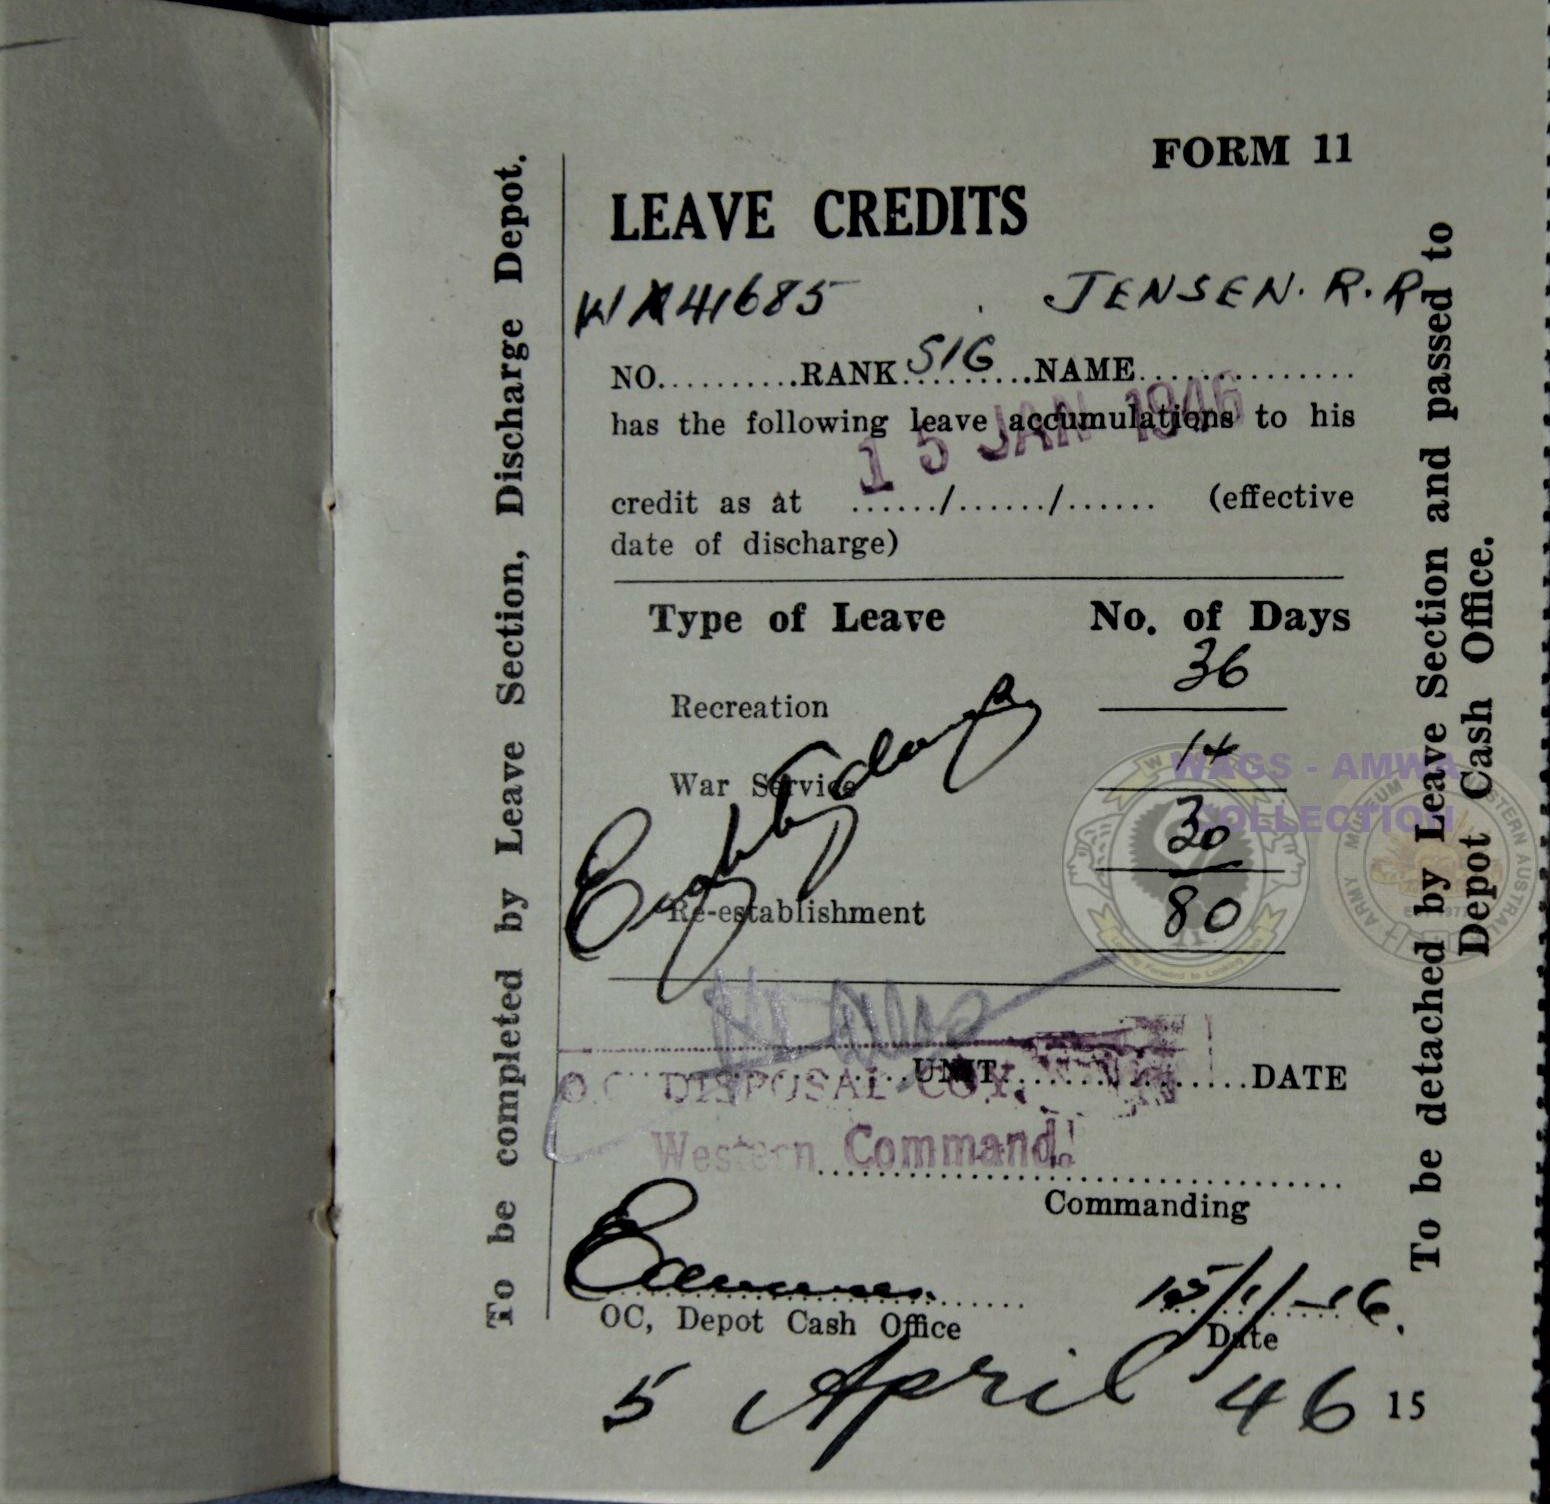 To be completed by Leave Section, Discharge Depot.
FORM 11
LEAVE CREDITS
WX41685 JENSEN. R. R
NO..........RANK SIG NAME...............
has the following leave accumulations to his
15 JAN 1946
credit as at ....../....../...... (effective
date of discharge)
Type of Leave No. of Days
Recreation 36
War Service 14
30
Re-establishment 80
Eighty days
UNIT DATE
O.C. DISPOSAL COY.
Western Command.
Commanding
15/1/46.
OC, Depot Cash Office Date
5 April 46 15
To be detached by Leave Section and passed to
Depot Cash Office.
WAGS - AMWA
COLLECTION